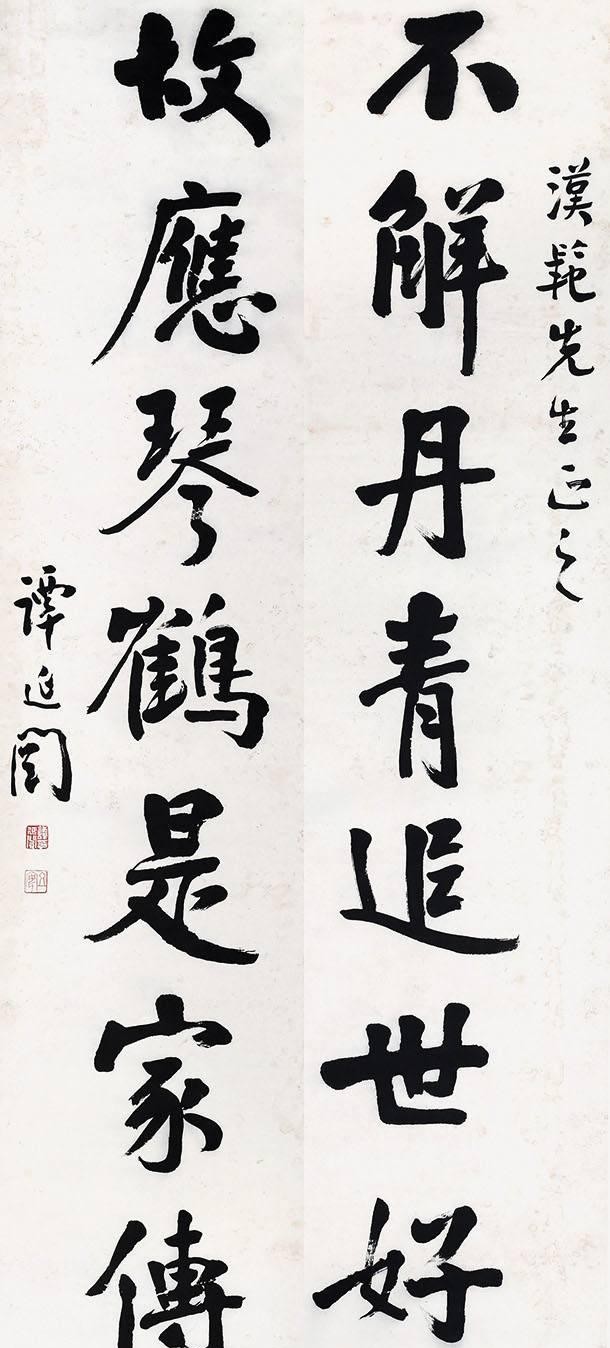 漢範先生正之
不解丹青追世好
故應琴鶴是家傳
譚延闓